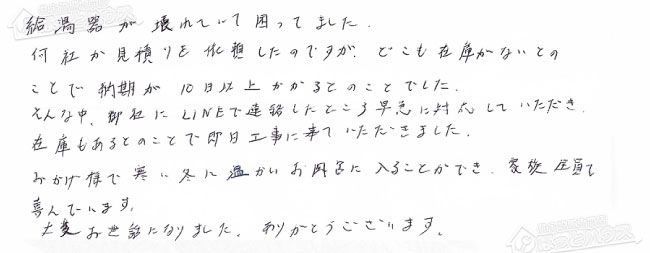 給湯器が壊れていて困ってました.
何社か見積りを依頼したのですが、どこも在庫がないとの
ことで納期が10日以上かかるとのことでした.
そんな中、御社にLINEで連絡したところ早急に対応していただき.
在庫もあるとのことで即日工事に来ていただきました.
おかげ様で寒い冬に温かいお風呂に入ることができ、家族全員で
喜んでいます.
大変お世話になりました。ありがとうございます.